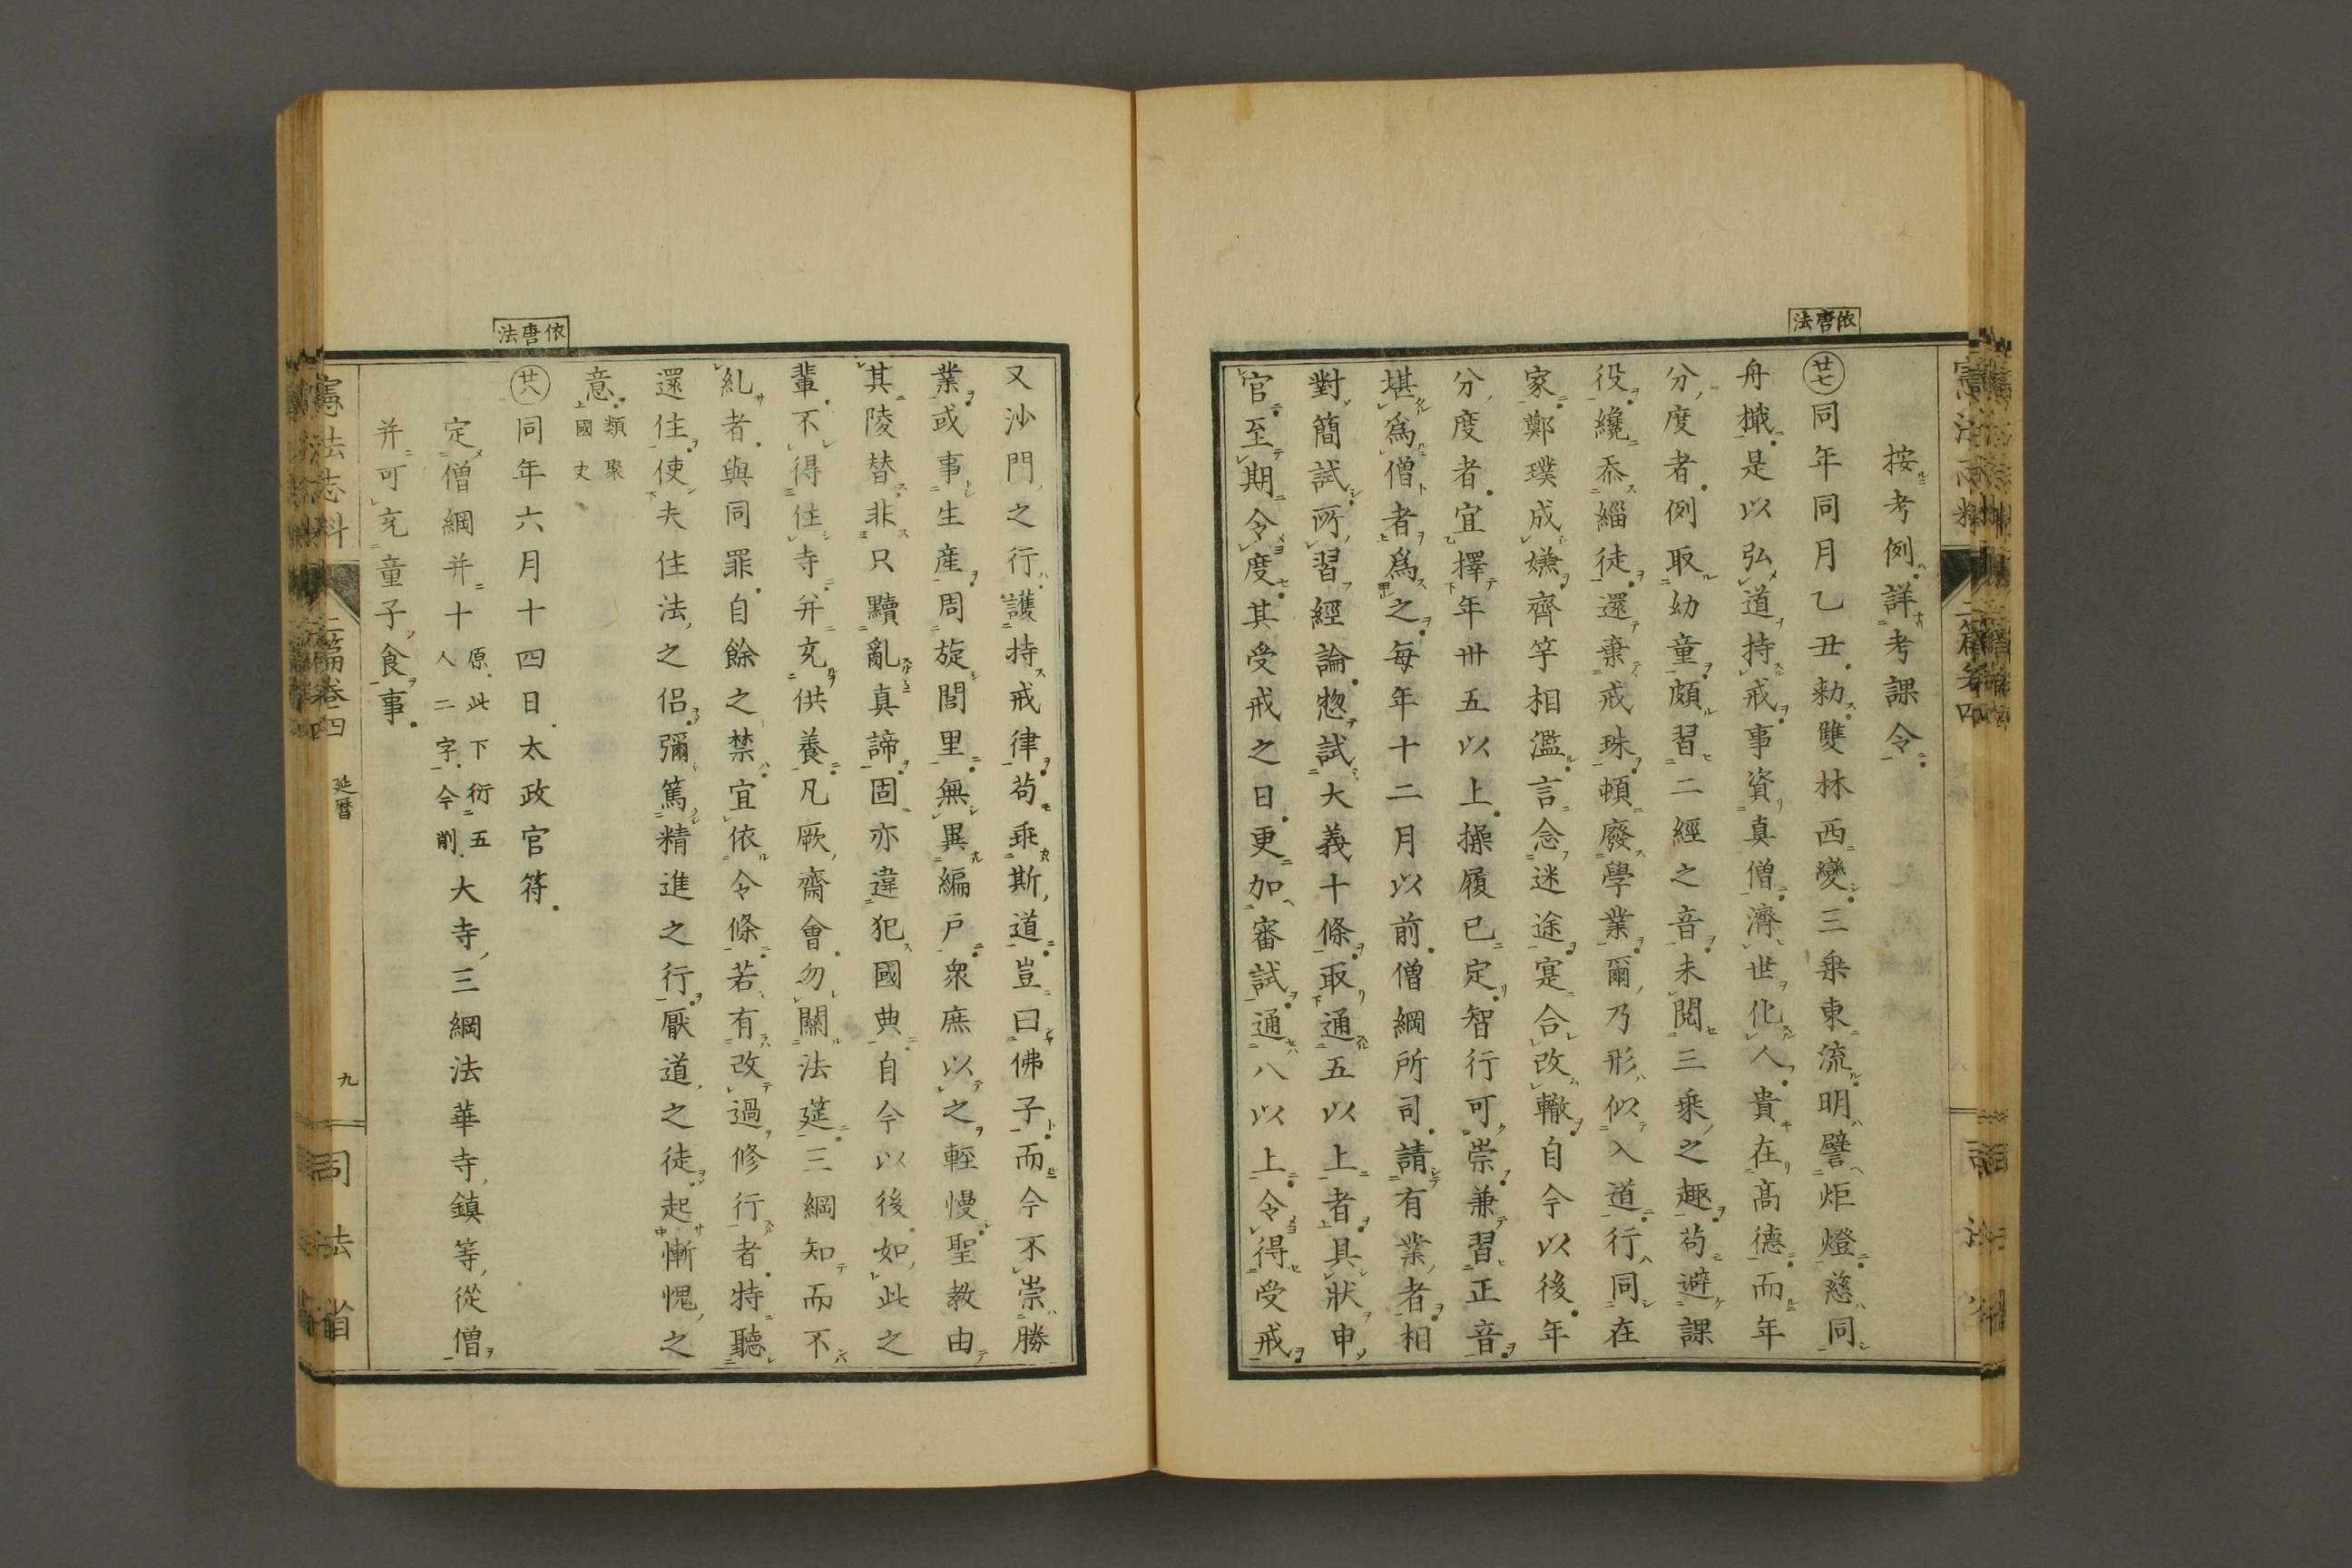 依唐法
按考例詳考課令
廿七同年同月乙丑勅雙林西變三乗東流明譬炬燈慈同
舟檝是以弘道持戒事資真僧濟世化人貴在髙德而年
分度者例取幼童頗習二經之音未閲三乗之趣苟避課
役纔忝緇徒還棄戒珠頓廢學業爾乃形似入道行同在
家鄭璞成嫌齊竽相濫言念迷途寔合改轍自今以後年
分度者宜擇年卅五以上操履已定智行可崇兼習正音
堪爲僧者爲之每年十二月以前僧綱所司請有業者相
對簡試所習經論惣試大義十條取通五以上者具狀申
官至期令度其受戒之日更加審試通八以上令得受戒
又沙門之行護持戒律苟乖斯道豈曰佛子而今不崇勝
業或事生産周旋閭里無異編戶衆庶以之輕慢聖教由
其陵替非只黷亂真諦固亦違犯國典自今以後如此之
輩不得住寺并充供養凡厥齋會勿關法筵三綱知而不
糺者與同罪自餘之禁宜依令條若有改過修行者特聽
還住使夫住法之侶彌篤精進之行厭道之徒起慚愧之
意類聚國史
依唐法
廿八同年六月十四日太政官符
定僧綱并十人原此下衍五二字今削大寺三綱法華寺鎮等從僧
并可充童子食事
憲法志料 二篇卷四 延暦 九 司法省